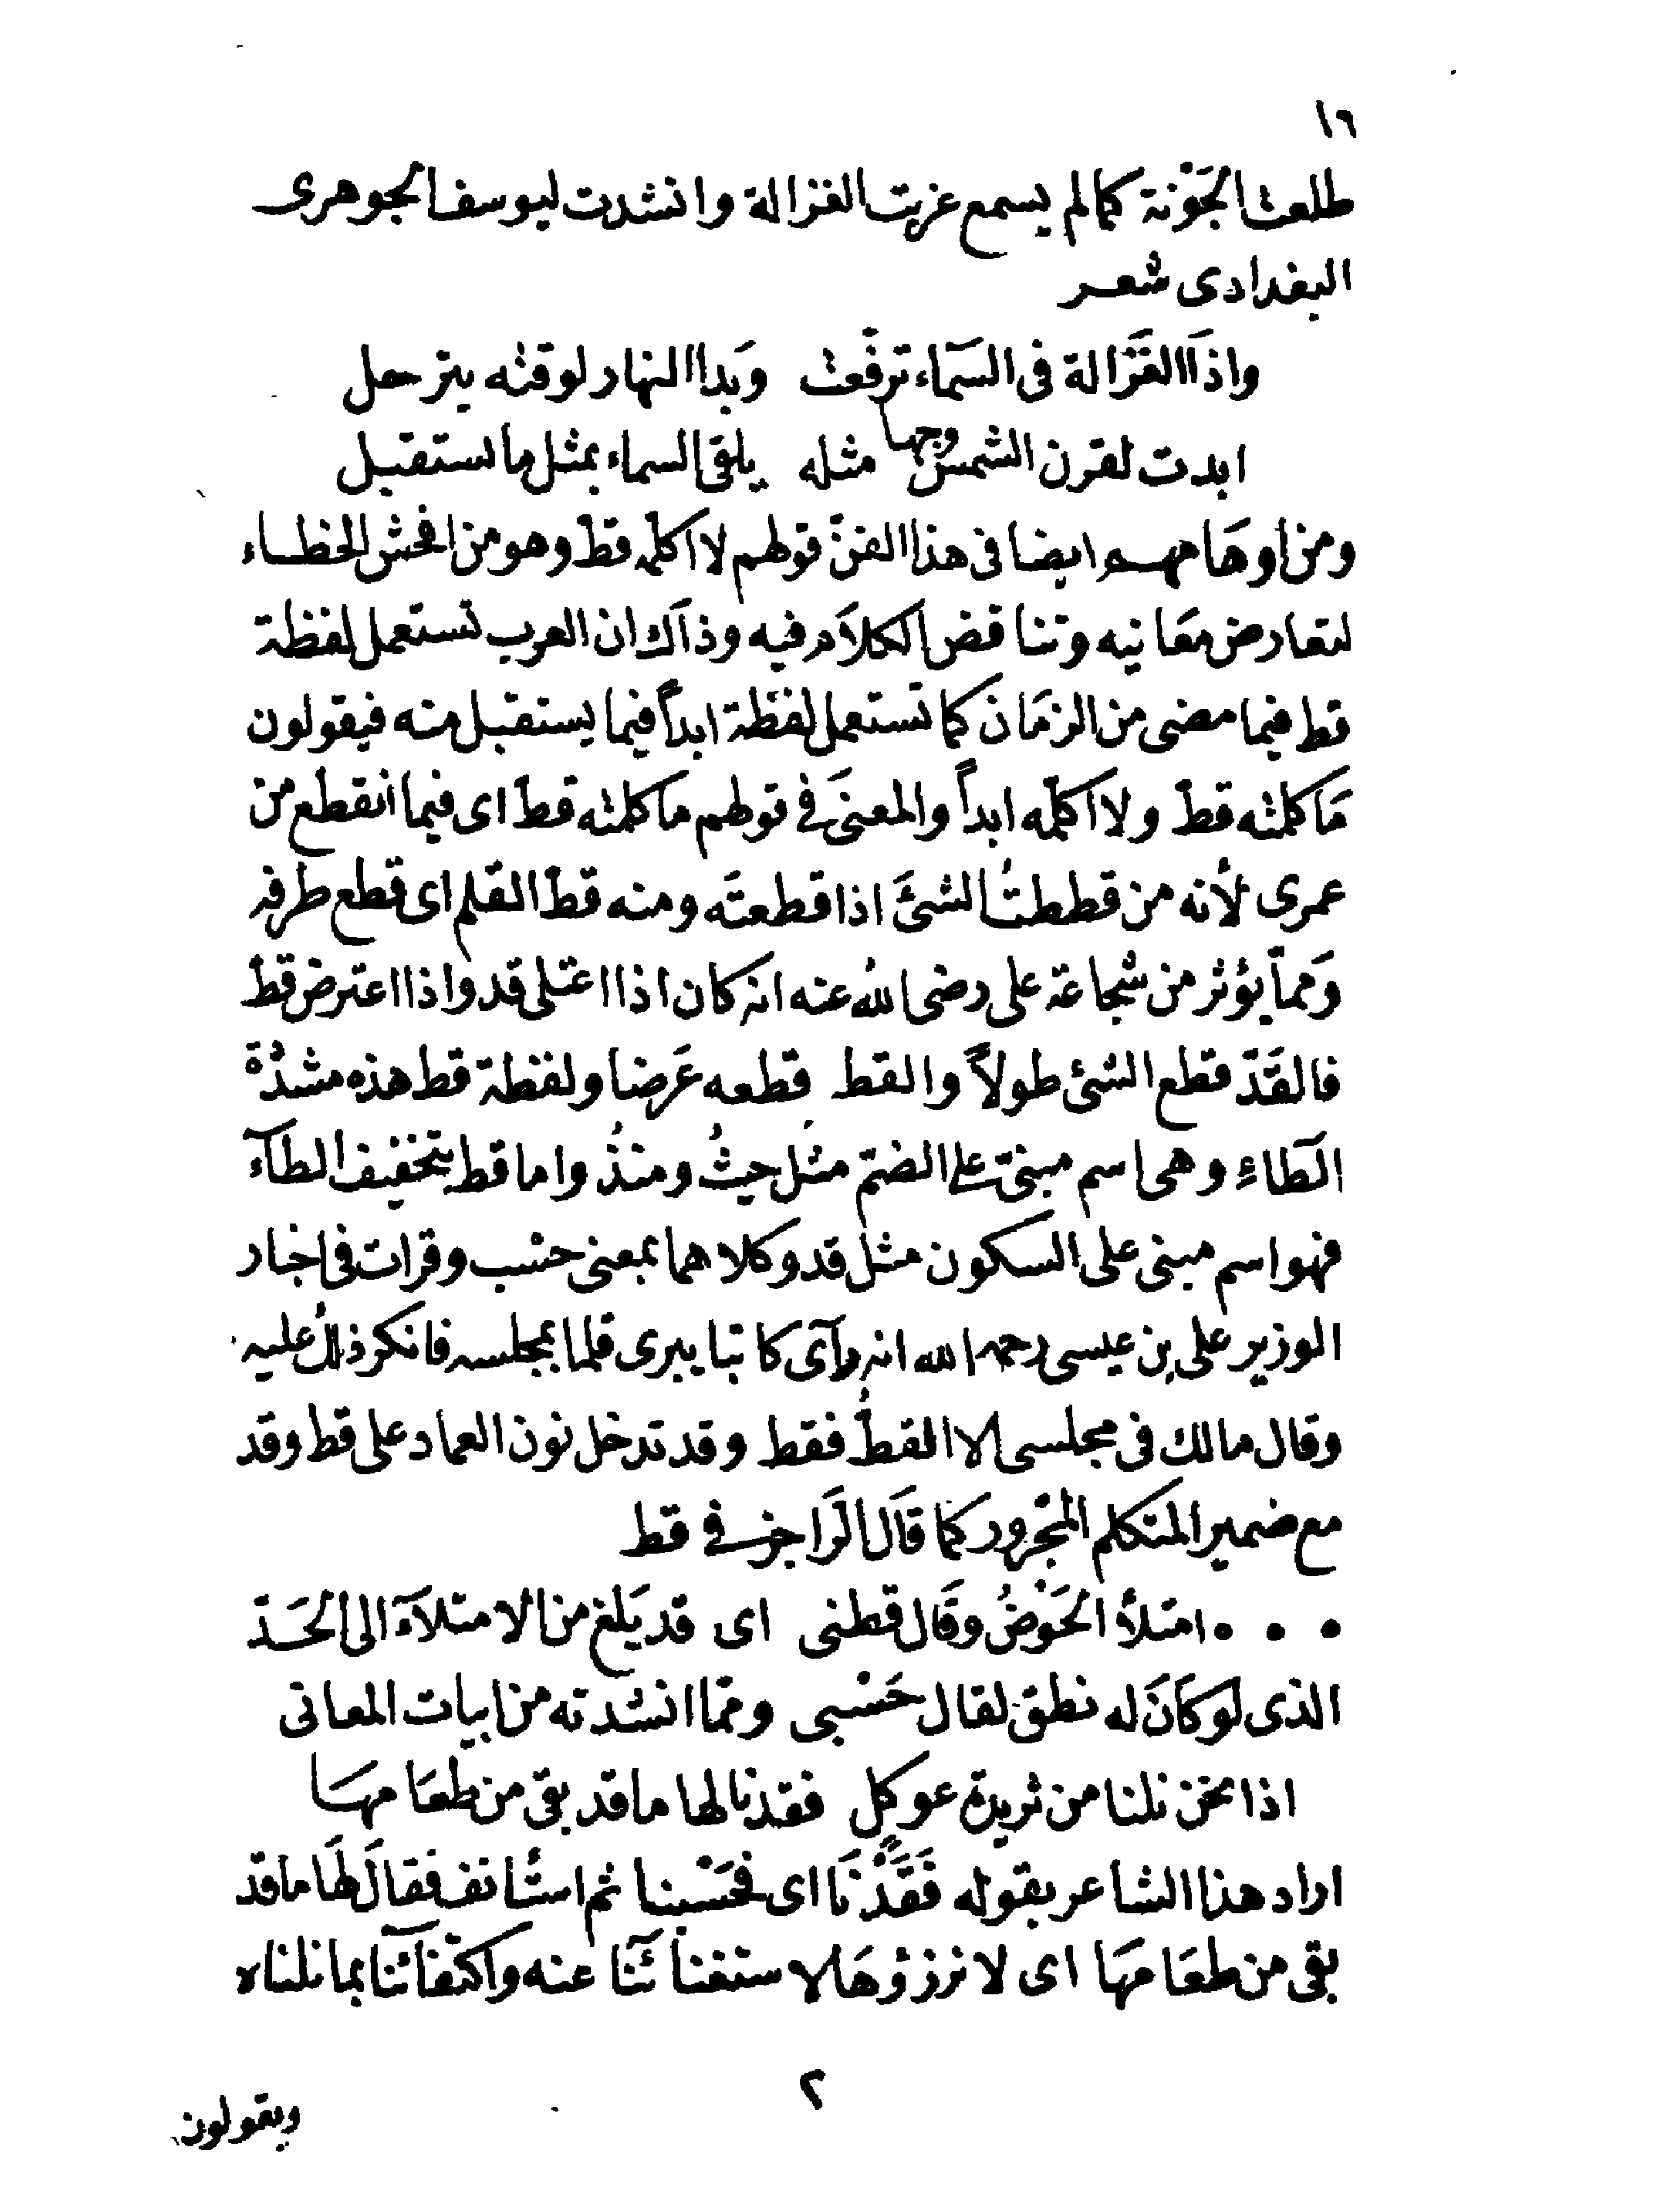 ١٦
طلعت الجَوْنة كما لم يسمع غربت الغزالة وانشدت ليوسف الجوهرى
البغدادى شعر
واذَا الغَزَالة فى السَمَاء ترفَعت وَبدا النهار لوقته يترحل
ابدت لقرن الشمس وجها مثله يلقى السماء بمثل ما تستقبل
ومن اوهَامهم ايضا فى هذا الفنّ قولهم لا اكلّمه قطّ وهو من افحش الخطاء
لتعارض مَعَانيه وتناقض الكلاَم فيه وذاَك ان العرب تستعمل لفظة
قط فيما مضى من الزمَان كما تستعمل لفظة ابداً فيما يستقبل منه فيقولون
مَا كلمته قطّ ولا اكلّمه ابداً والمعنَى فى قولهم ما كلمته قطّ اى فيما انقطع من
عمرى لأنه من قططتُ الشئَ اذا قطعتَه ومنه قطّ القلم اى قطع طرفه
وَمما يؤثر من شجاعة على رضى الله عنه انه كان اذا اعتلى قد واذا اعترض قطّ
فالقَدّ قطع الشئ طولاً والقط قطعه عَرضا ولفظة قط هذه مشدّدة
الطَاءِ وهى اسم مبنىّ على الضمّ مثل حيثُ ومنذُ واما قط بتخفيف الطآء
فهو اسم مبنى على السكون مثل قد وكلاهما بمعنى حسْب وقرات فى اخبار
الوزير على بن عيسى رحمه الله انه رآى كاتبا يبرى قلما بمجلسه فانكر ذلك عليه
وقال مالك فى مجلسى الا القطُّ فقط وقد تدخل نون العماد على قط وقد
مع ضمير المتكلم المجرور كما قَال الرَاجز فى قط
• • • امتلأ الحَوْضُ وقَال قطنى اى قد بَلغ من الامتلآء الى الحَدّ
الذى لو كَانَ له نطق لقال حَسْبى وممّا انشدته من ابيات المعانى
اذا نحن نلنا من ثريدة عوكل فقدنا لها ما قد بقى من طعَامهَا
اراد هذا الشاعر بقوله فَقَدْنَا اى فحَسْبنا ثم استأنف فقال لهَا ما قد
بقى من طعَامهَا اى لا نرزؤهَا لاستغنائنَا عنه واكتفائنا بما نلناه
٢
ويقولون